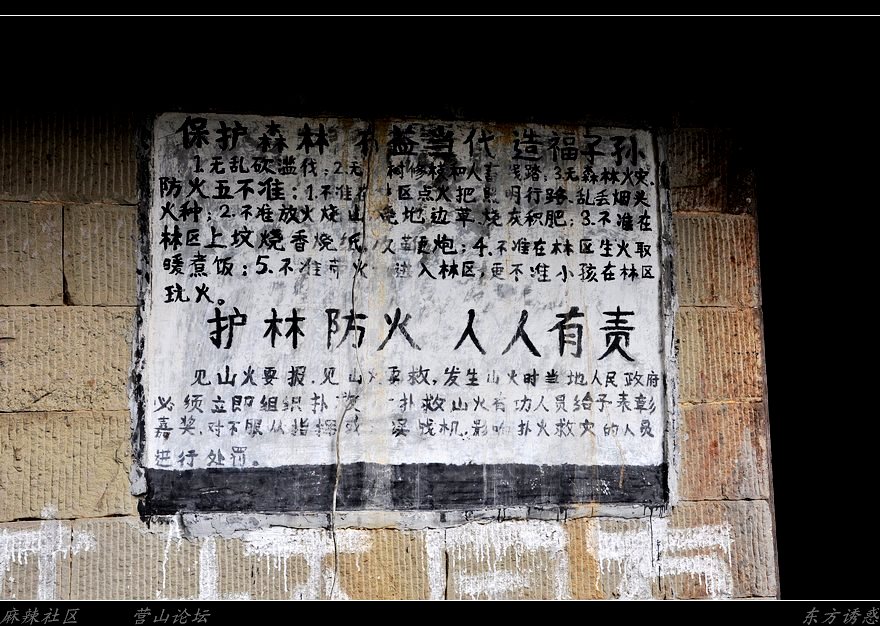 保护森林 有益当代 造福子孙
1.无乱砍滥伐;2.无 树修枝和人畜践踏;3.无森林火灾.
防火五不准:1.不准 区点火把照明行路.乱丢烟头
火种;2.不准放火烧山 地边草烧灰积肥;3.不准在
林区上坟烧香烧纸 鞭炮;4.不准在林区生火取
暖煮饭;5.不准带火 进入林区,更不准小孩在林区
玩火。
护林防火 人人有责
见山火要报.见山火要救,发生山火时当地人民政府
必须立即组织扑救 扑救山火有功人员给予表彰
嘉奖.对不服从指挥或 误战机.影响扑火救灾的人员
进行处罚。
麻辣社区 营山论坛 东方诱惑